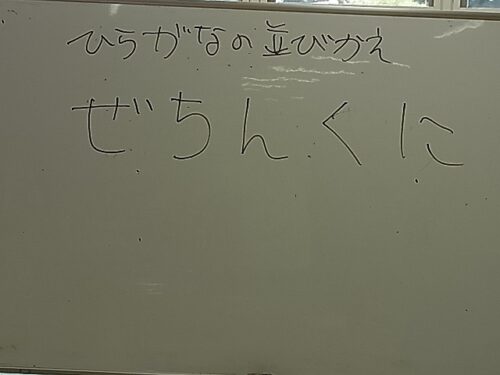 ひらがなの並びかえ
ぜちんくに